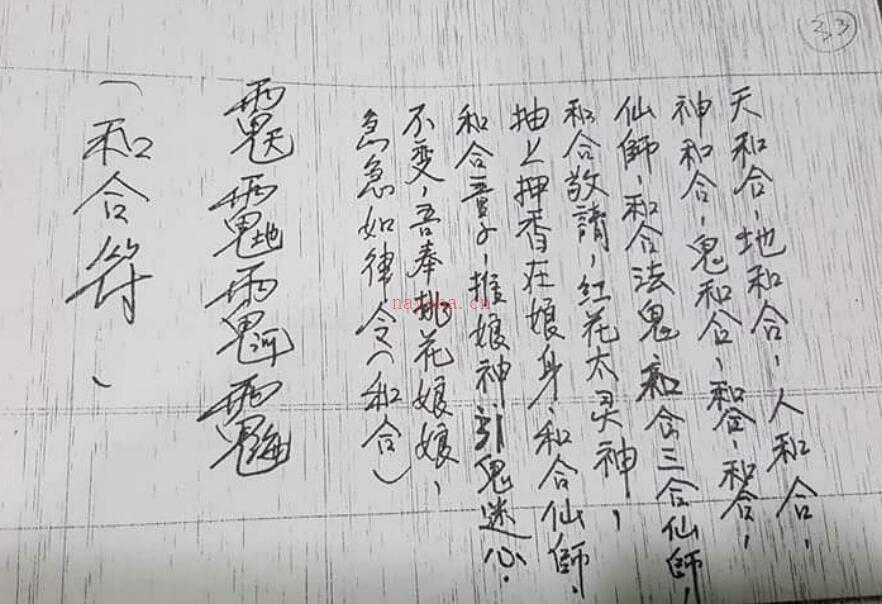 33
天和合，地和合，人和合，
神和合，鬼和合，和合，和合，
仙師，和合法鬼和合三合仙師，
和合敬請，红花太灵神，
抽上押香在娘身，和合仙師．
和合童子，娘神引鬼迷心．
不变，吾奉桃花娘娘，
急急如律令（和合）
（和合符）
nayona.cn